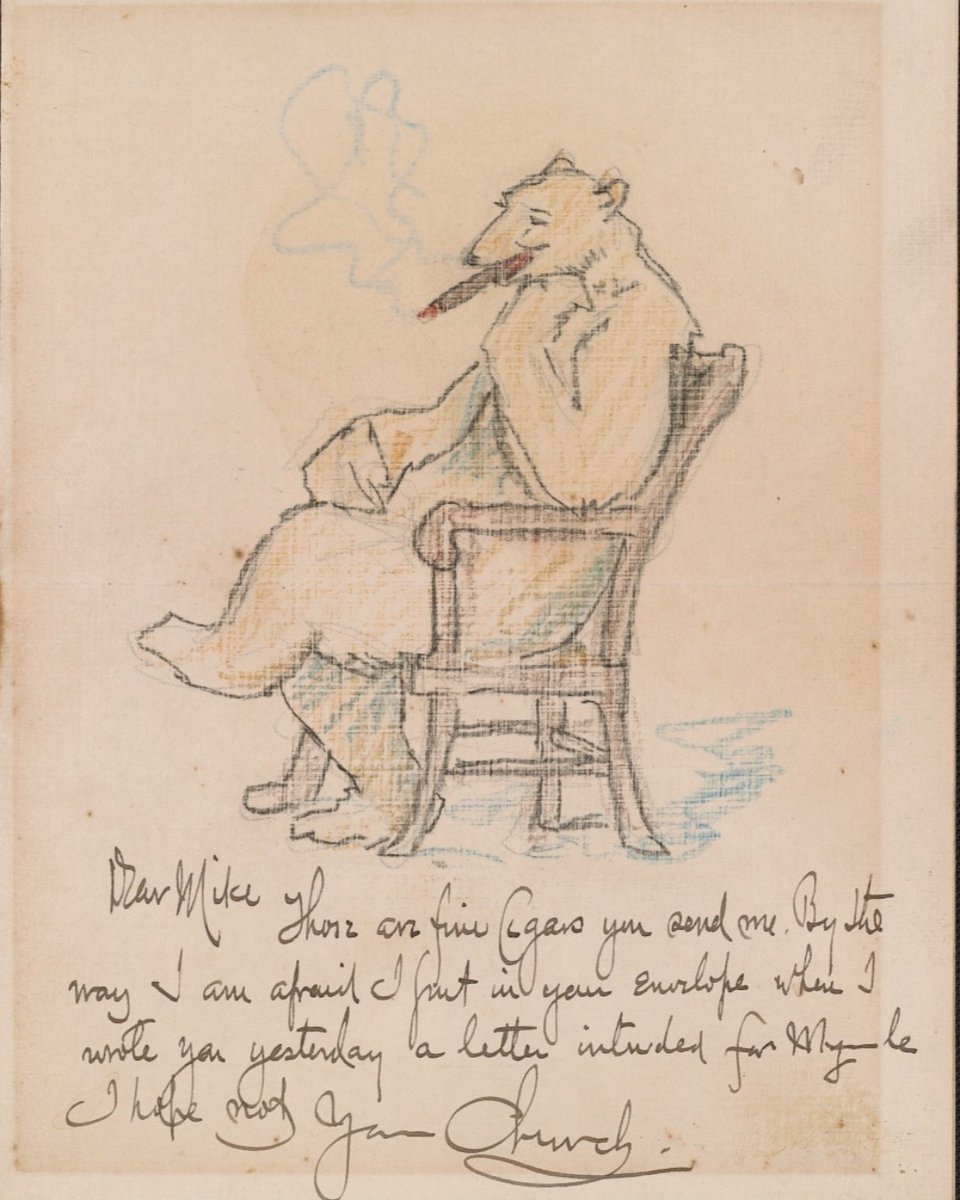 Dear Mike Those are fine Cigars you send me. By the
way I am afraid I put in your Envelope when I
wrote you yesterday a letter intended for
I hope not Your Church.